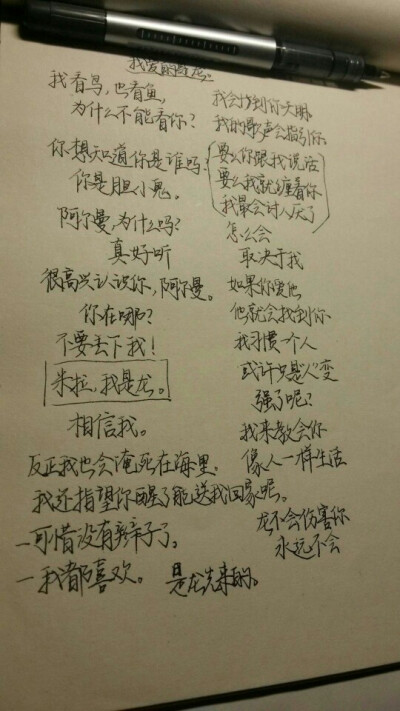 我爱的是龙。
我看鸟,也看鱼,
为什么不能看你?
你想知道你是谁吗?
你是胆小鬼。
阿尔曼,为什么吗?
真好听
很高兴认识你,阿尔曼。
你在哪?
不要丢下我!
米拉,我是龙。
相信我。
反正我也会淹死在海里,
我还指望你醒了能送我回家呢。
一可惜没有辫子了。
一我都喜欢。是龙先来的。
我会找到你
我的歌声会指引你。
要么你跟我说话
要么我就缠着你
我最会讨人厌了
怎么会
取决于我
如果你爱他
他就会找到你
我习惯一个人
或许只是"人"变
强了呢?
我来教会你
像人一样生活
龙不会伤害你
永远不会